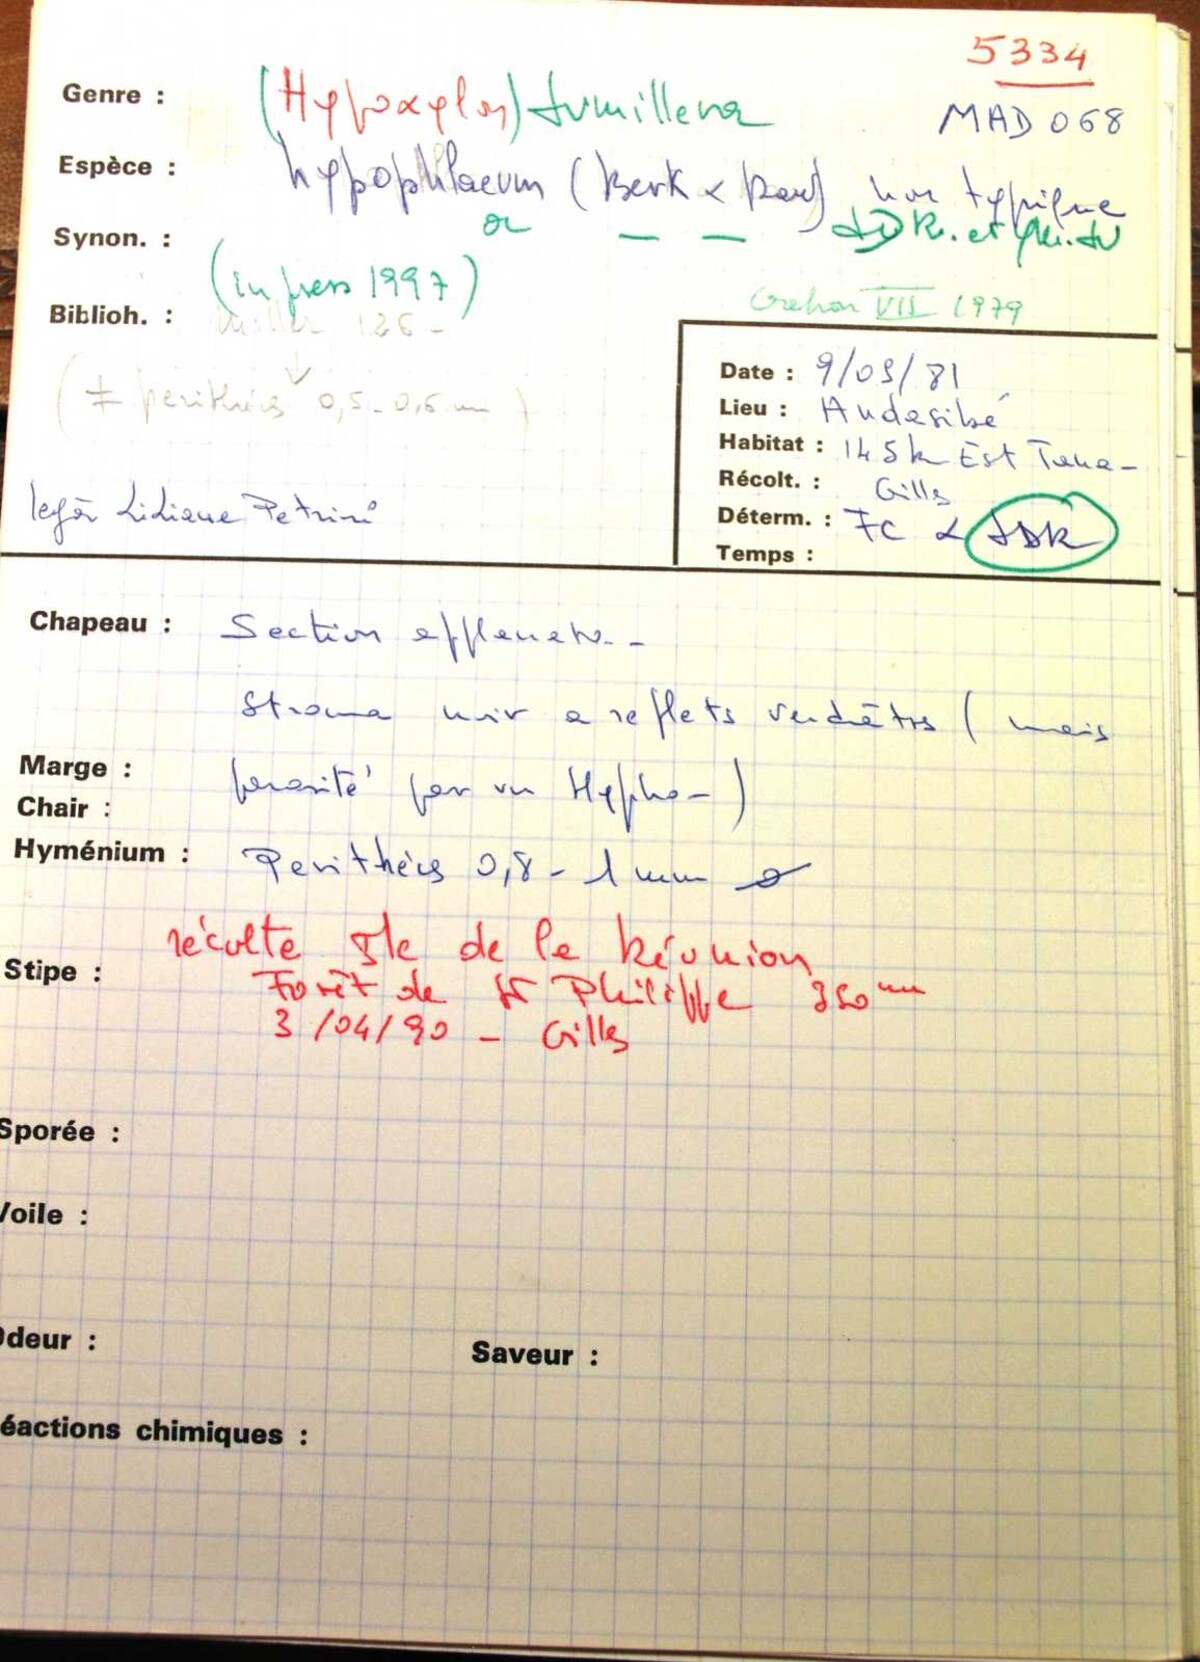 5334
Genre : (Hypoxylon) Jumillera
MAD 068
Espèce : hypophlaeum (Berk & Rav) non typique
or — — JDR. et
Synon. :
(in press 1997)
Biblioh. : Miller 126 -
VII 1979
(≠ perithèces 0,5 - 0,6 mm)
Date : 9/03/81
Lieu : Andasibé
Habitat : 145 k Est Tana -
Récolt. : Gilles
Déterm. : FC & JDR
Temps :
Liliane Petrini
Chapeau : Section
Stroma noir a reflets verdâtres (mais
Marge : parasité par un Hypho - )
Chair :
Hyménium : Perithèces 0,8 - 1 mm ø
récolte Ile de la Réunion
Stipe : Forêt de St Philippe 350 m
3/04/90 - Gilles
Sporée :
Voile :
Odeur :
Saveur :
éactions chimiques :